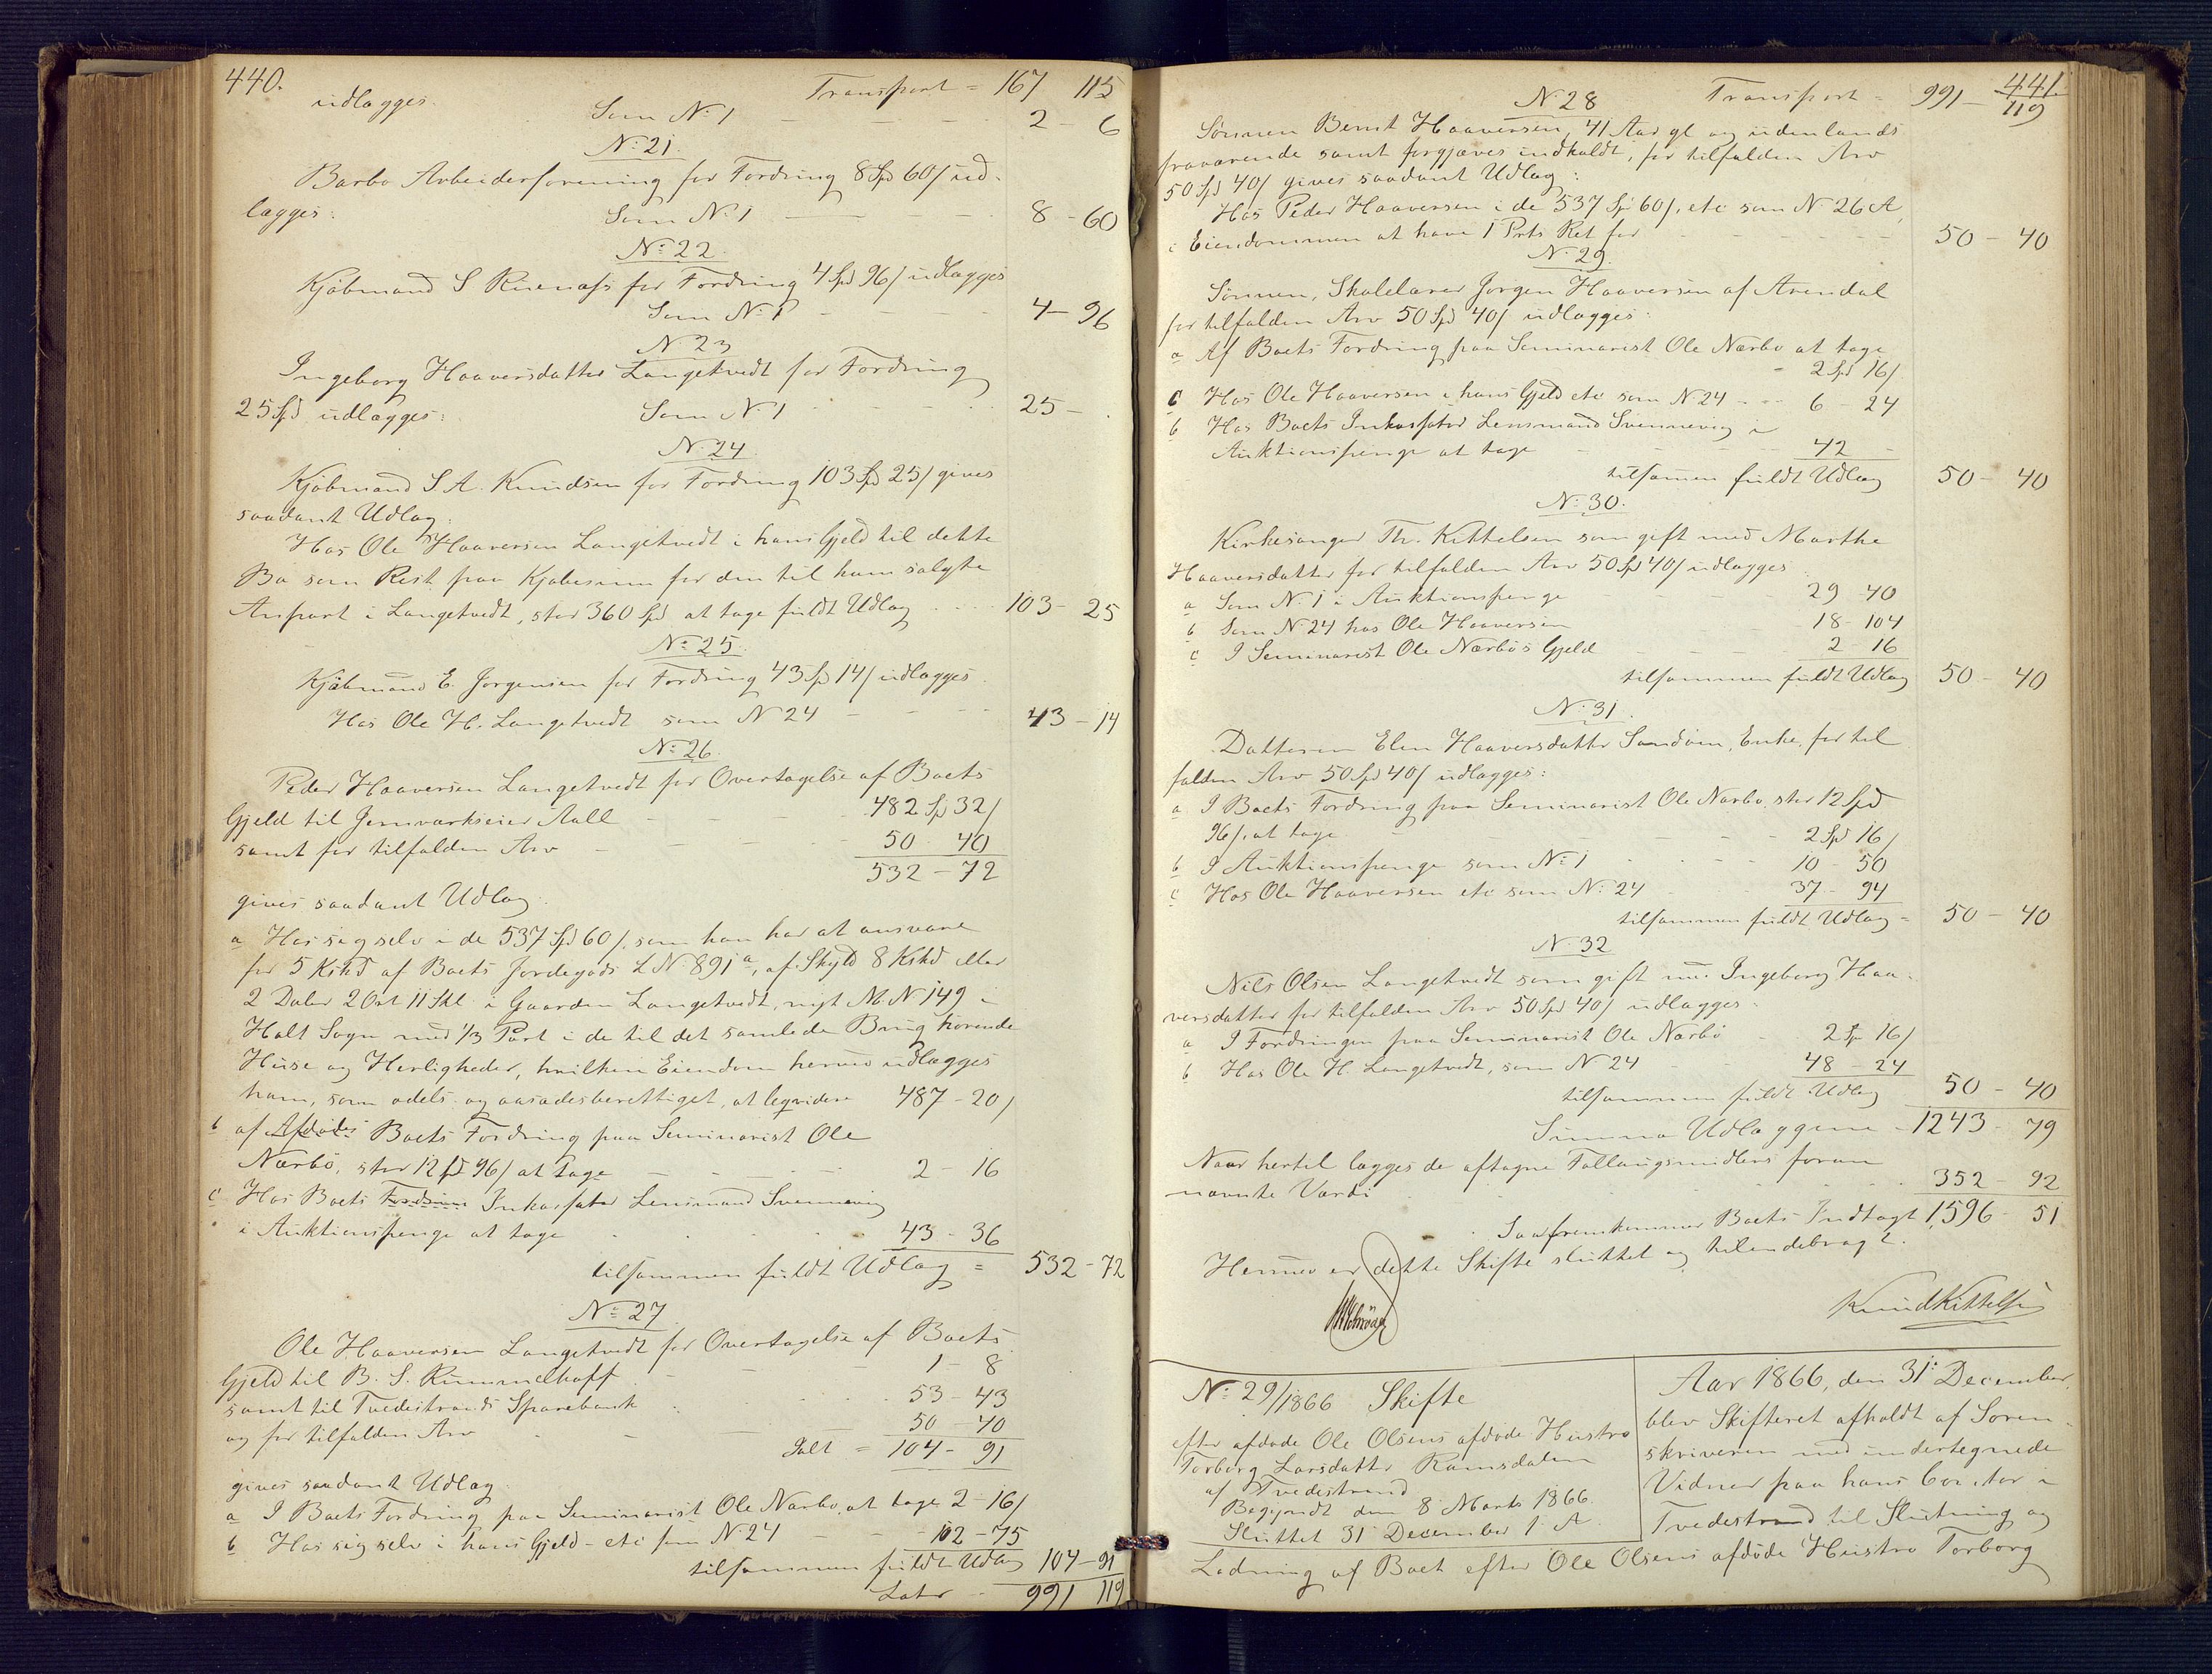 440.
Transport = 167 115
udlægges.
Som N: 1 - - - 2 - 6
N: 21.
Barbo Arbeiderforening for Fordring 8 Spd 60/ ud-
lægges: Som N: 1 - - 8 - 60
N: 22.
Kjøbmand S for Fordring 4 Spd 96/ udlægges
Som N: 1 - - - 4 - 96
N: 23
Ingeborg Haaversdatter Langetvedt for Fordring
25 Spd udlægges: Som N: 1 - - - 25 - .
N: 24.
Kjøbmand S. A. Knudsen for Fordring 103 Spd 25/ gives
saadant Udlæg:
Hos Ole Haaversen Langetvedt i hans Gjeld til dette
Bo som Rest paa Kjøbesum for den til ham solgte
Anpart i Langetvedt, stor 360 Spd at tage fuldt Udlæg 103 - 25
N: 25.
Kjøbmand E. Jørgensen for Fordring 43 Spd 14/ udlægges
Hos Ole H. Langetvedt som N 24 - - - 43 - 14
N: 26.
Peder Haaversen Langetvedt for Overtagelse af Boets
Gjeld til Jernværkseier Aall - - - 482 Spd 32/
samt for tilfalden Arv - - 50 - 40
532 - 72
gives saadant Udlæg:
a Hos sig selv i de 537 Spd 60/, som han har at ansvare
for 5 Kskd af Boets Jordegods L N: 891 a, af Skyld 8 Kskd eller
2 Daler 2 Ort 11 Skl. i Gaarden Langetvedt, nyt M. N: 149 i
Holt Sogn med 1/3 Part i de til det samlede Brug hørende
Huse og Herligheder, hvilken Eiendom herved udlægges
ham, som odels- og aasædesberettiget, at leqvidere 487 - 20/
b af Afdødes Boets Fordring paa Seminarist Ole
Nærbø, stor 12 Spd 96/ at tage - - - 2 - 16
c Hos Boets Fordring Inkassator Lensmand Svennevig
i Auktionspenge at tage 43 - 36
tilsammen fuldt Udlæg = 532 - 72
N: 27
Ole Haaversen Langetvedt for Overtagelse af Boets
Gjeld til B. S. Rummelhoff - - - 1 - 8
samt til Tvedestrands Sparebank 53 - 43
og for tilfalden Arv - - - 50 - 40
Ialt = 104 - 91
gives saadant Udlæg:
a I Boets Fordring paa Seminarist Ole Nærbø, at tage 2 - 16/
b Hos sig selv i hans Gjeld - etc som N: 24 - - 102 - 75
tilsammen fuldt Udlæg 104 - 91
Later - 991 119
441.
N: 28 Transport = 991 - 119
Sønnen Bernt Haaversen, 41 Aar gl og udenlands
fraværende samt forgjæves indkaldt, for tilfalden Arv
50 Spd 40/ gives saadant Udlæg:
Hos Peder Haaversen i de 537 Sp 60/, etc som N: 26 A,
i Eiendommen at have 1 Prts Ret for - - - 50 - 40
N: 29.
Sønnen, Skolelærer Jørgen Haaversen af Arendal
for tilfalden Arv 50 Spd 40/ udlægges:
a Af Boets Fordring paa Seminarist Ole Nærbø at tage
2 Spd 16/
c Hos Ole Haaversen i hans Gjeld etc som N: 24 - - 6 - 24
b Hos Boets Inkassator Lensmand Svennevig i
Auktionspenge at tage - - - 42 -
tilsammen fuldt Udlæg 50 - 40
N: 30.
Kirkesanger Th. Kittelsen som gift med Marthe
Haaversdatter for tilfalden Arv 50 Spd 40/ udlægges
a Som N: 1 i Auktionspenge - - - 29 40
b Som N: 24 hos Ole Haaversen 18 - 104
c I Seminarist Ole Nærbøs Gjeld - - - 2 - 16
tilsammen fuldt Udlæg 50 - 40
N: 31.
Datteren Elen Haaversdatter Sandøen, Enke, for til
falden Arv 50 Spd 40/ udlægges:
a I Boets Fordring paa Seminarist Ole Nærbø, stor 12 Spd
96/, at tage - - - 2 Spd 16/
b I Auktionspenge som N: 1 - - - 10 - 50
c Hos Ole Haaversen etc som N: 24 - - 37 - 94
tilsammen fuldt Udlæg = 50 - 40
N: 32
Nils Olsen Langetvedt som gift med Ingeborg Haa-
versdatter for tilfalden Arv 50 Spd 40/ udlægges:
a I Fordringen paa Seminarist Ole Nærbø - 2 Sp 16/
b Hos Ole H. Langetvedt, som N: 24 48 - 24
tilsammen fuldt Udlæg 50 - 40
Summa Udlæggene - 1243 - 79
Naar hertil lægges de aftagne Follaugsmidlers foran
nævnte Værdi 352 - 92
Saa fremkommer Boets Indtægt 1,596 - 51
Hermed er dette Skifte sluttet og tilendebragt.
Knud Kittelsen
N: 29/1866 Skifte
efter afdøde Ole Olsens afdøde Hustro
Torborg Larsdatter Ramsdalen
af Tvedestrand
Begyndt den 8 Marts 1866.
Sluttet 31 December s. A.
Aar 1866, den 31: December,
blev Skifteret afholdt af Soren-
skriveren med undertegnede
Vidner paa hans Contor i
Tvedestrand til Slutning og
Lodning af Boet efter Ole Olsens afdøde Hustro Torborg